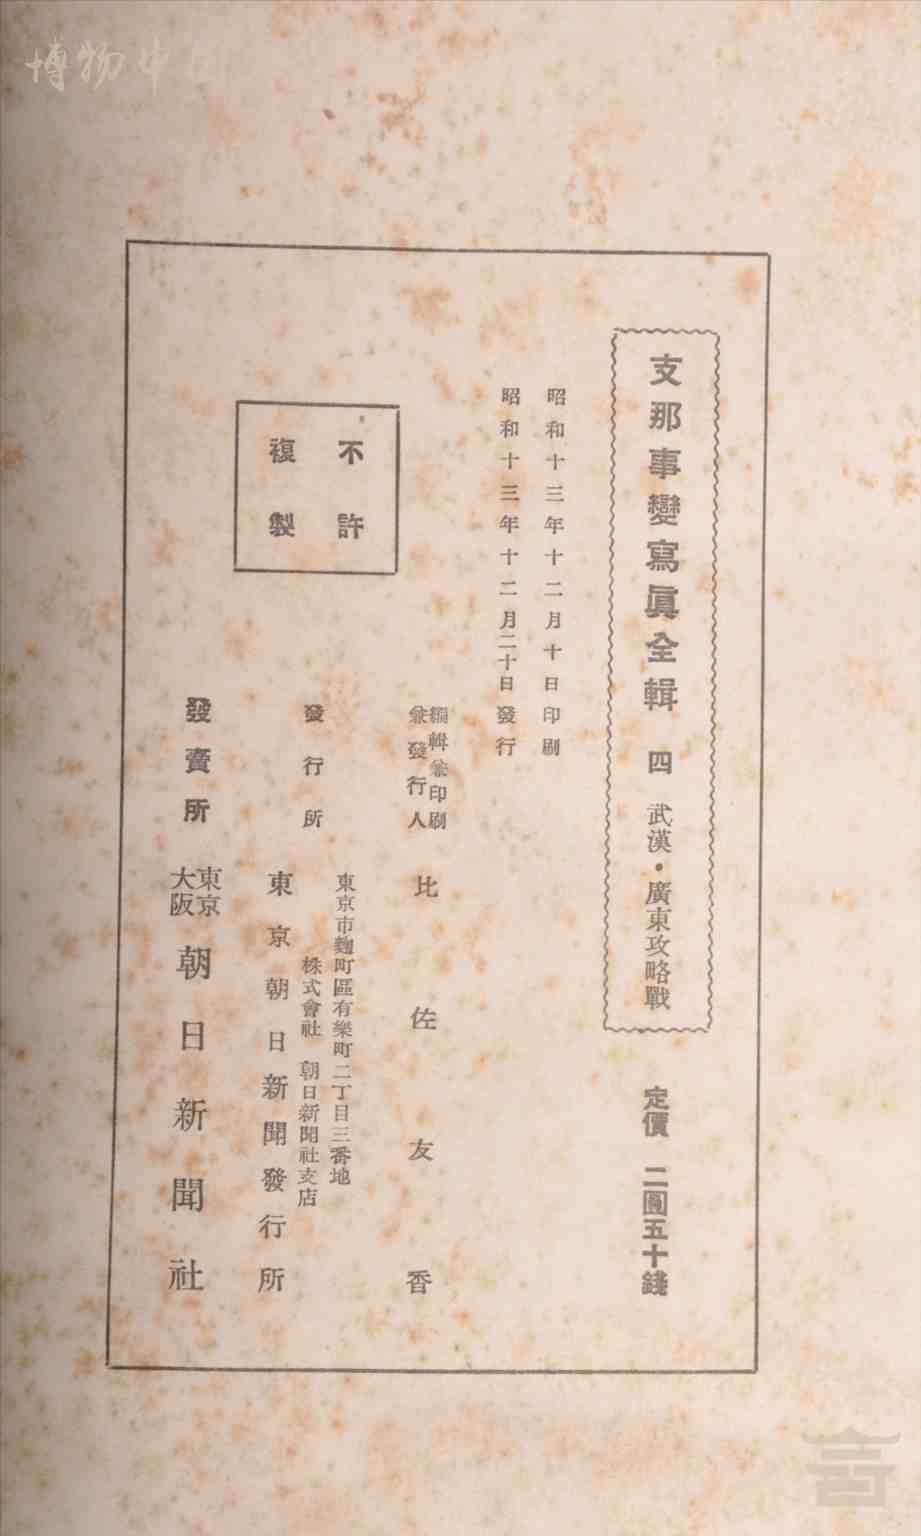 博物中
支那事變寫眞全輯 四 武漢・廣東攻略戰
定價 二圓五十錢
昭和十三年十二月十日印刷
昭和十三年十二月二十日發行
編輯兼印刷
兼發行人
比佐友香
不許
複製
發行所
東京市麴町區有樂町二丁目三番地
株式會社 朝日新聞社支店
東京朝日新聞發行所
發賣所
東京
大阪
朝日新聞社